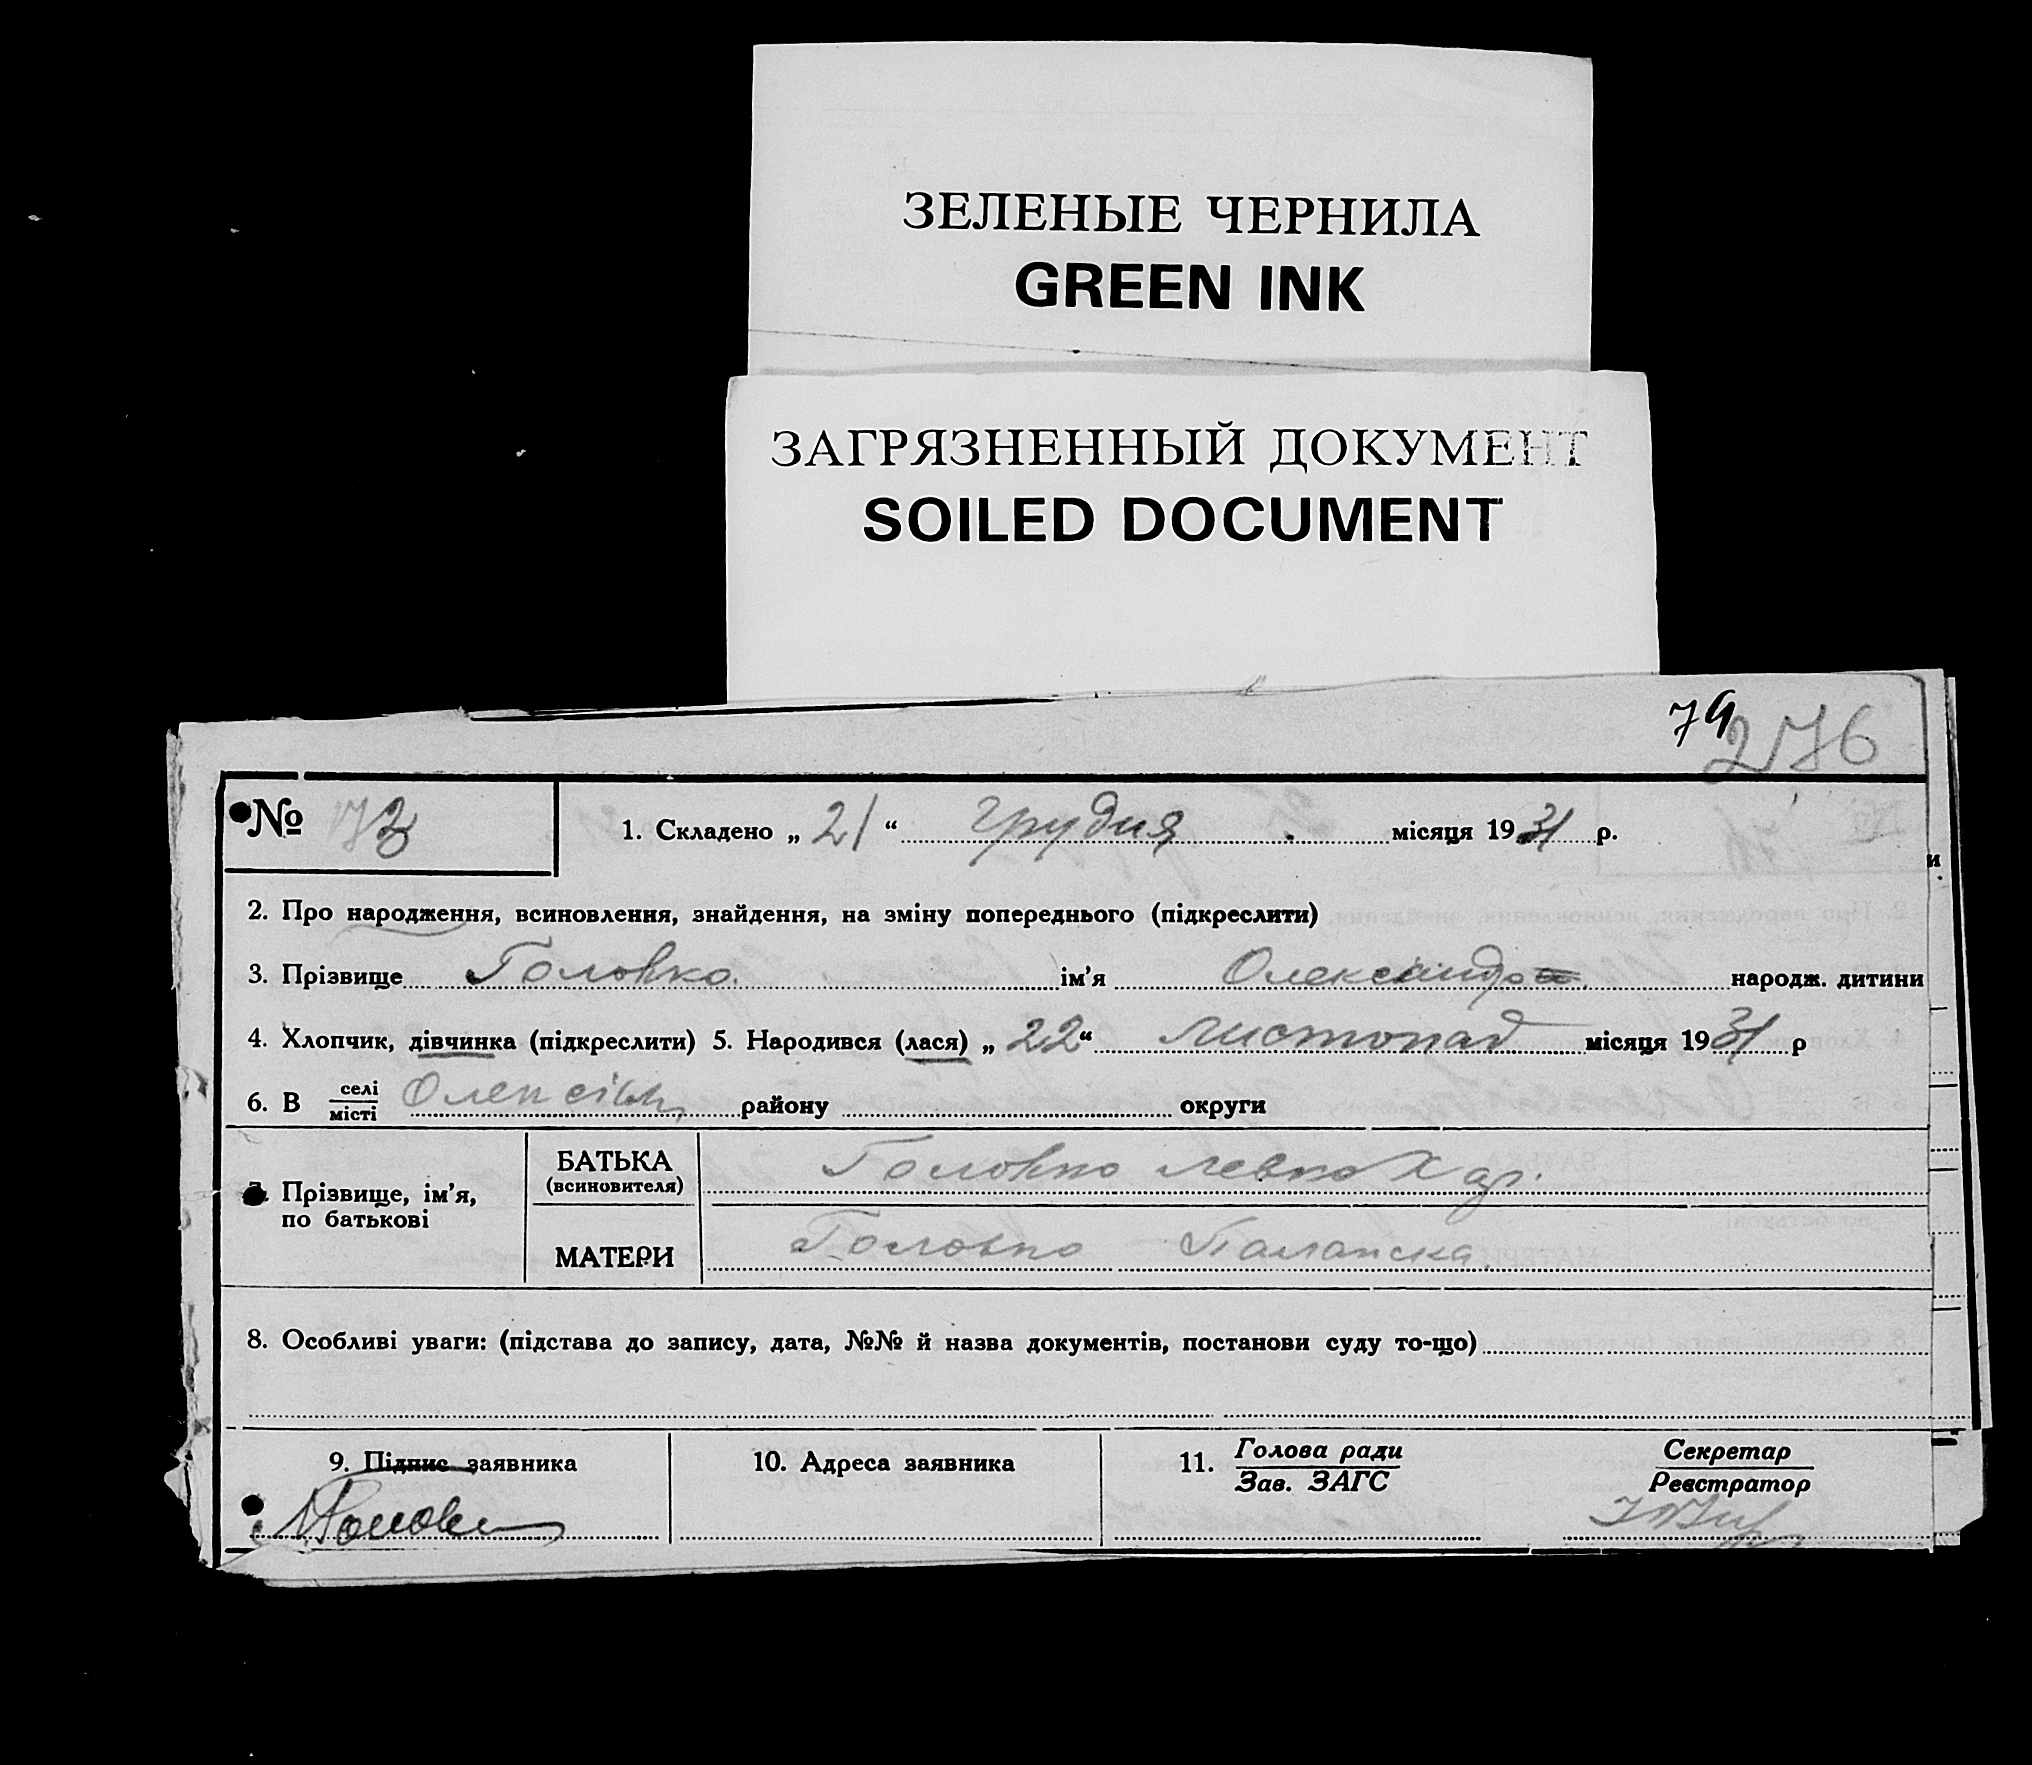 ЗЕЛЕНЫЕ ЧЕРНИЛА
GREEN INK
ЗАГРЯЗНЕННЫЙ ДОКУМЕНТ
SOILED DOCUMENT
79
276
№ 73
1. Складено „ 21 “ грудня місяця 1931 р.
2. Про народження, всиновлення, знайдення, на зміну попереднього (підкреслити)
3. Прізвище Головко ім'я Олександра народж. дитини
4. Хлопчик, дівчинка (підкреслити) 5. Народився (лася) „ 22 “ листопад місяця 1931 р
6. В селі
місті
району округи
7. Прізвище, ім'я,
по батькові
БАТЬКА
(всиновителя)
Головко Левко Хар.
МАТЕРИ
Головко Палашка
8. Особливі уваги: (підстава до запису, дата, №№ й назва документів, постанови суду то-що)
9. Підпис заявника
10. Адреса заявника
11. Голова ради
Зав. ЗАГС
Секретар
Реєстратор